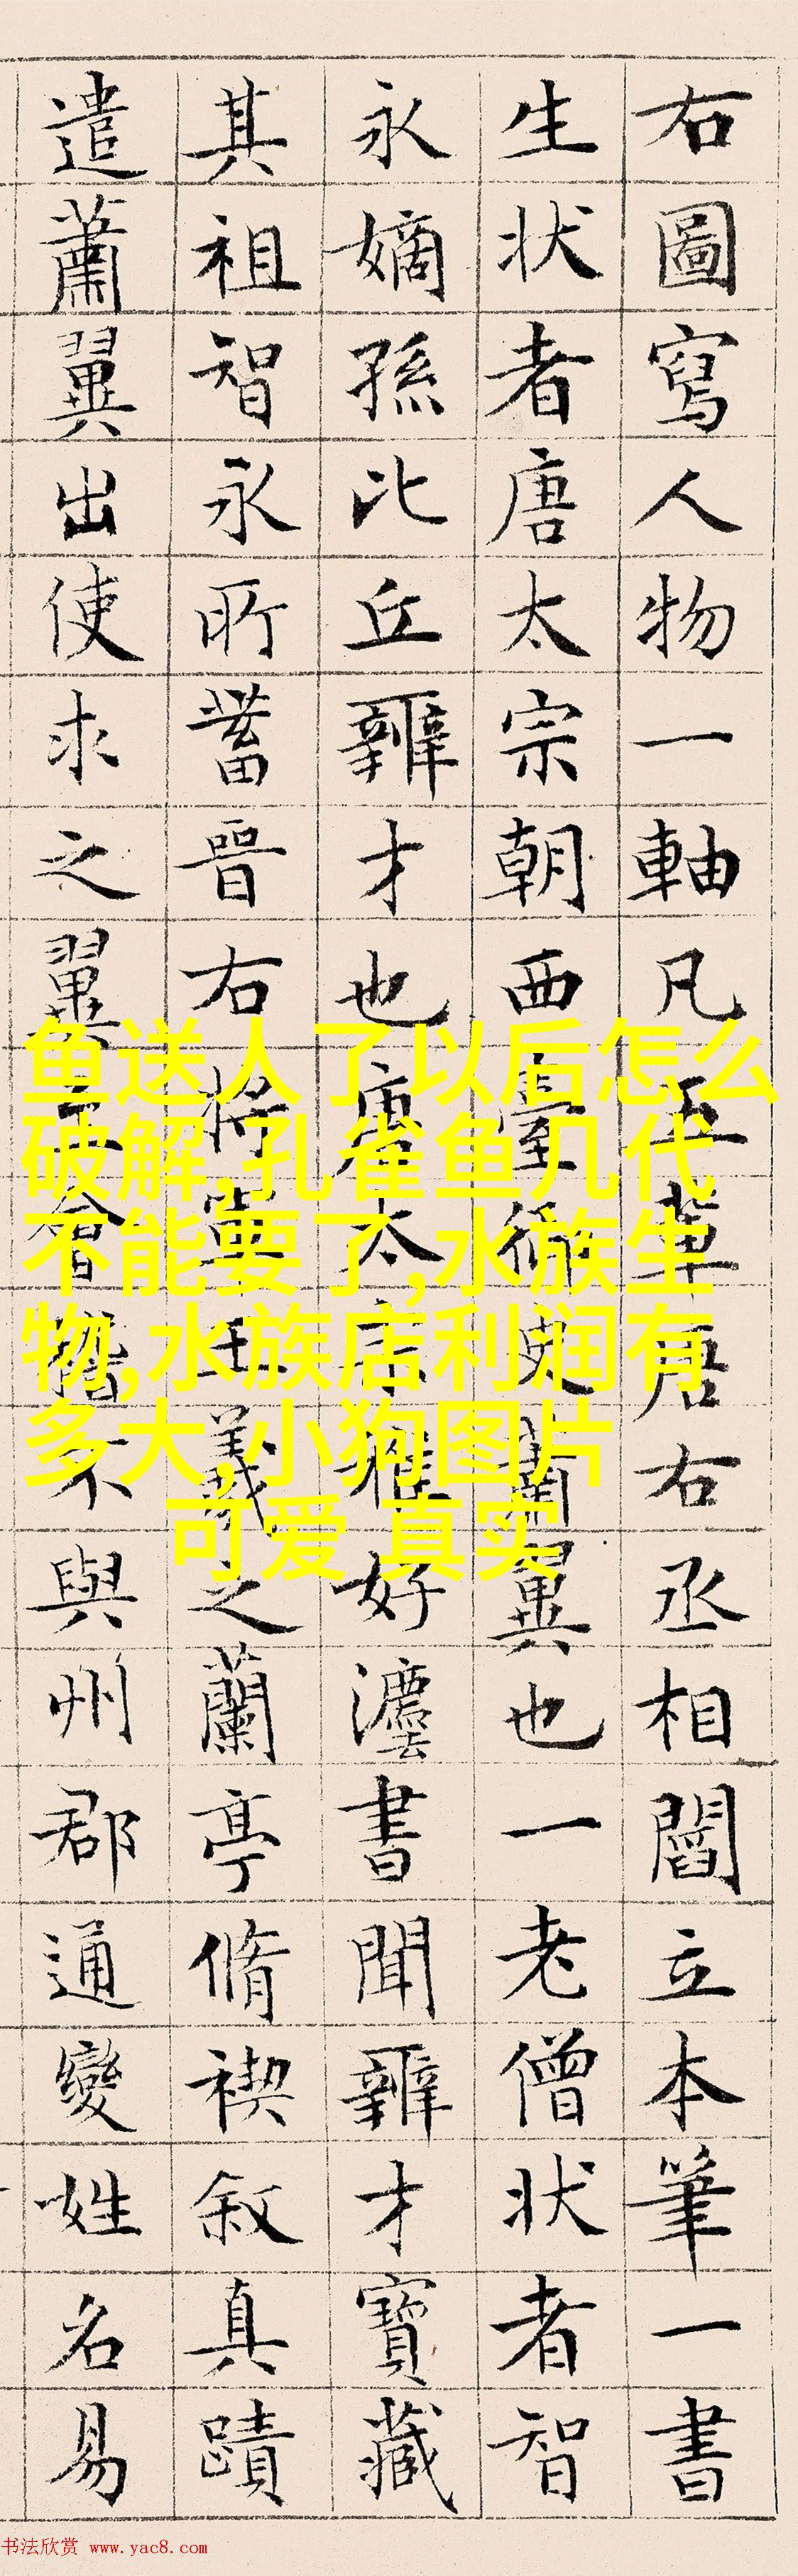 右圖寫人物一軸凡五輩唐右丞相閻立本筆一書
生状者唐太宗朝西臺御史蕭翼也一老僧状者智
永嫡孫比丘辯才也唐太宗雅好灋書聞辯才寶藏
其祖智永所蓄晉右將軍王羲之蘭亭脩禊叙真蹟
遣蕭翼出使求之翼至會稽不與州郡通變姓名易
鱼送人了以后怎么
破解,孔雀鱼几代
不能要了,水族生
物,水族店利润有
多大,小狗图片
可爱 真实
书法欣赏 www.yac8.com